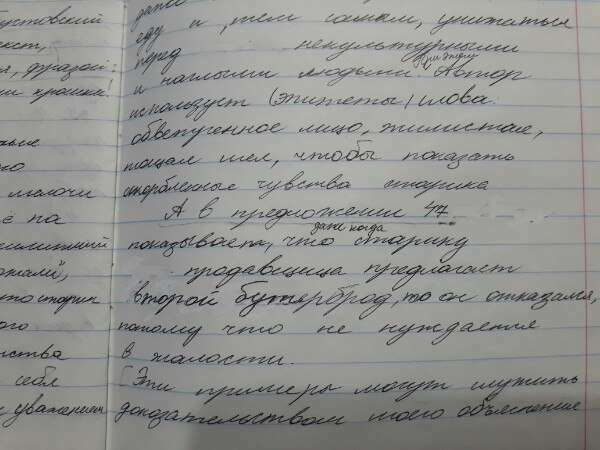 устовский
екст,
я, фразой:
и крошка!
ные
го
мелочи
ё на
тами",
то старик
ого
нства
себя
уважением
далее
еду и, тем самым, унижаться
перед некультурными
и наглыми людьми. При этом Автор
использует (эпитеты) слова:
обветренное лицо, жилистая,
тощая шея, чтобы показать
оскорбленные чувства старика
А в предложении 47
показывает, что даже когда старику
продавщица предлагает
второй бутерброд, то он отказался,
потому что не нуждается
в жалости.
[Эти примеры могут служить
доказательством моего объяснения